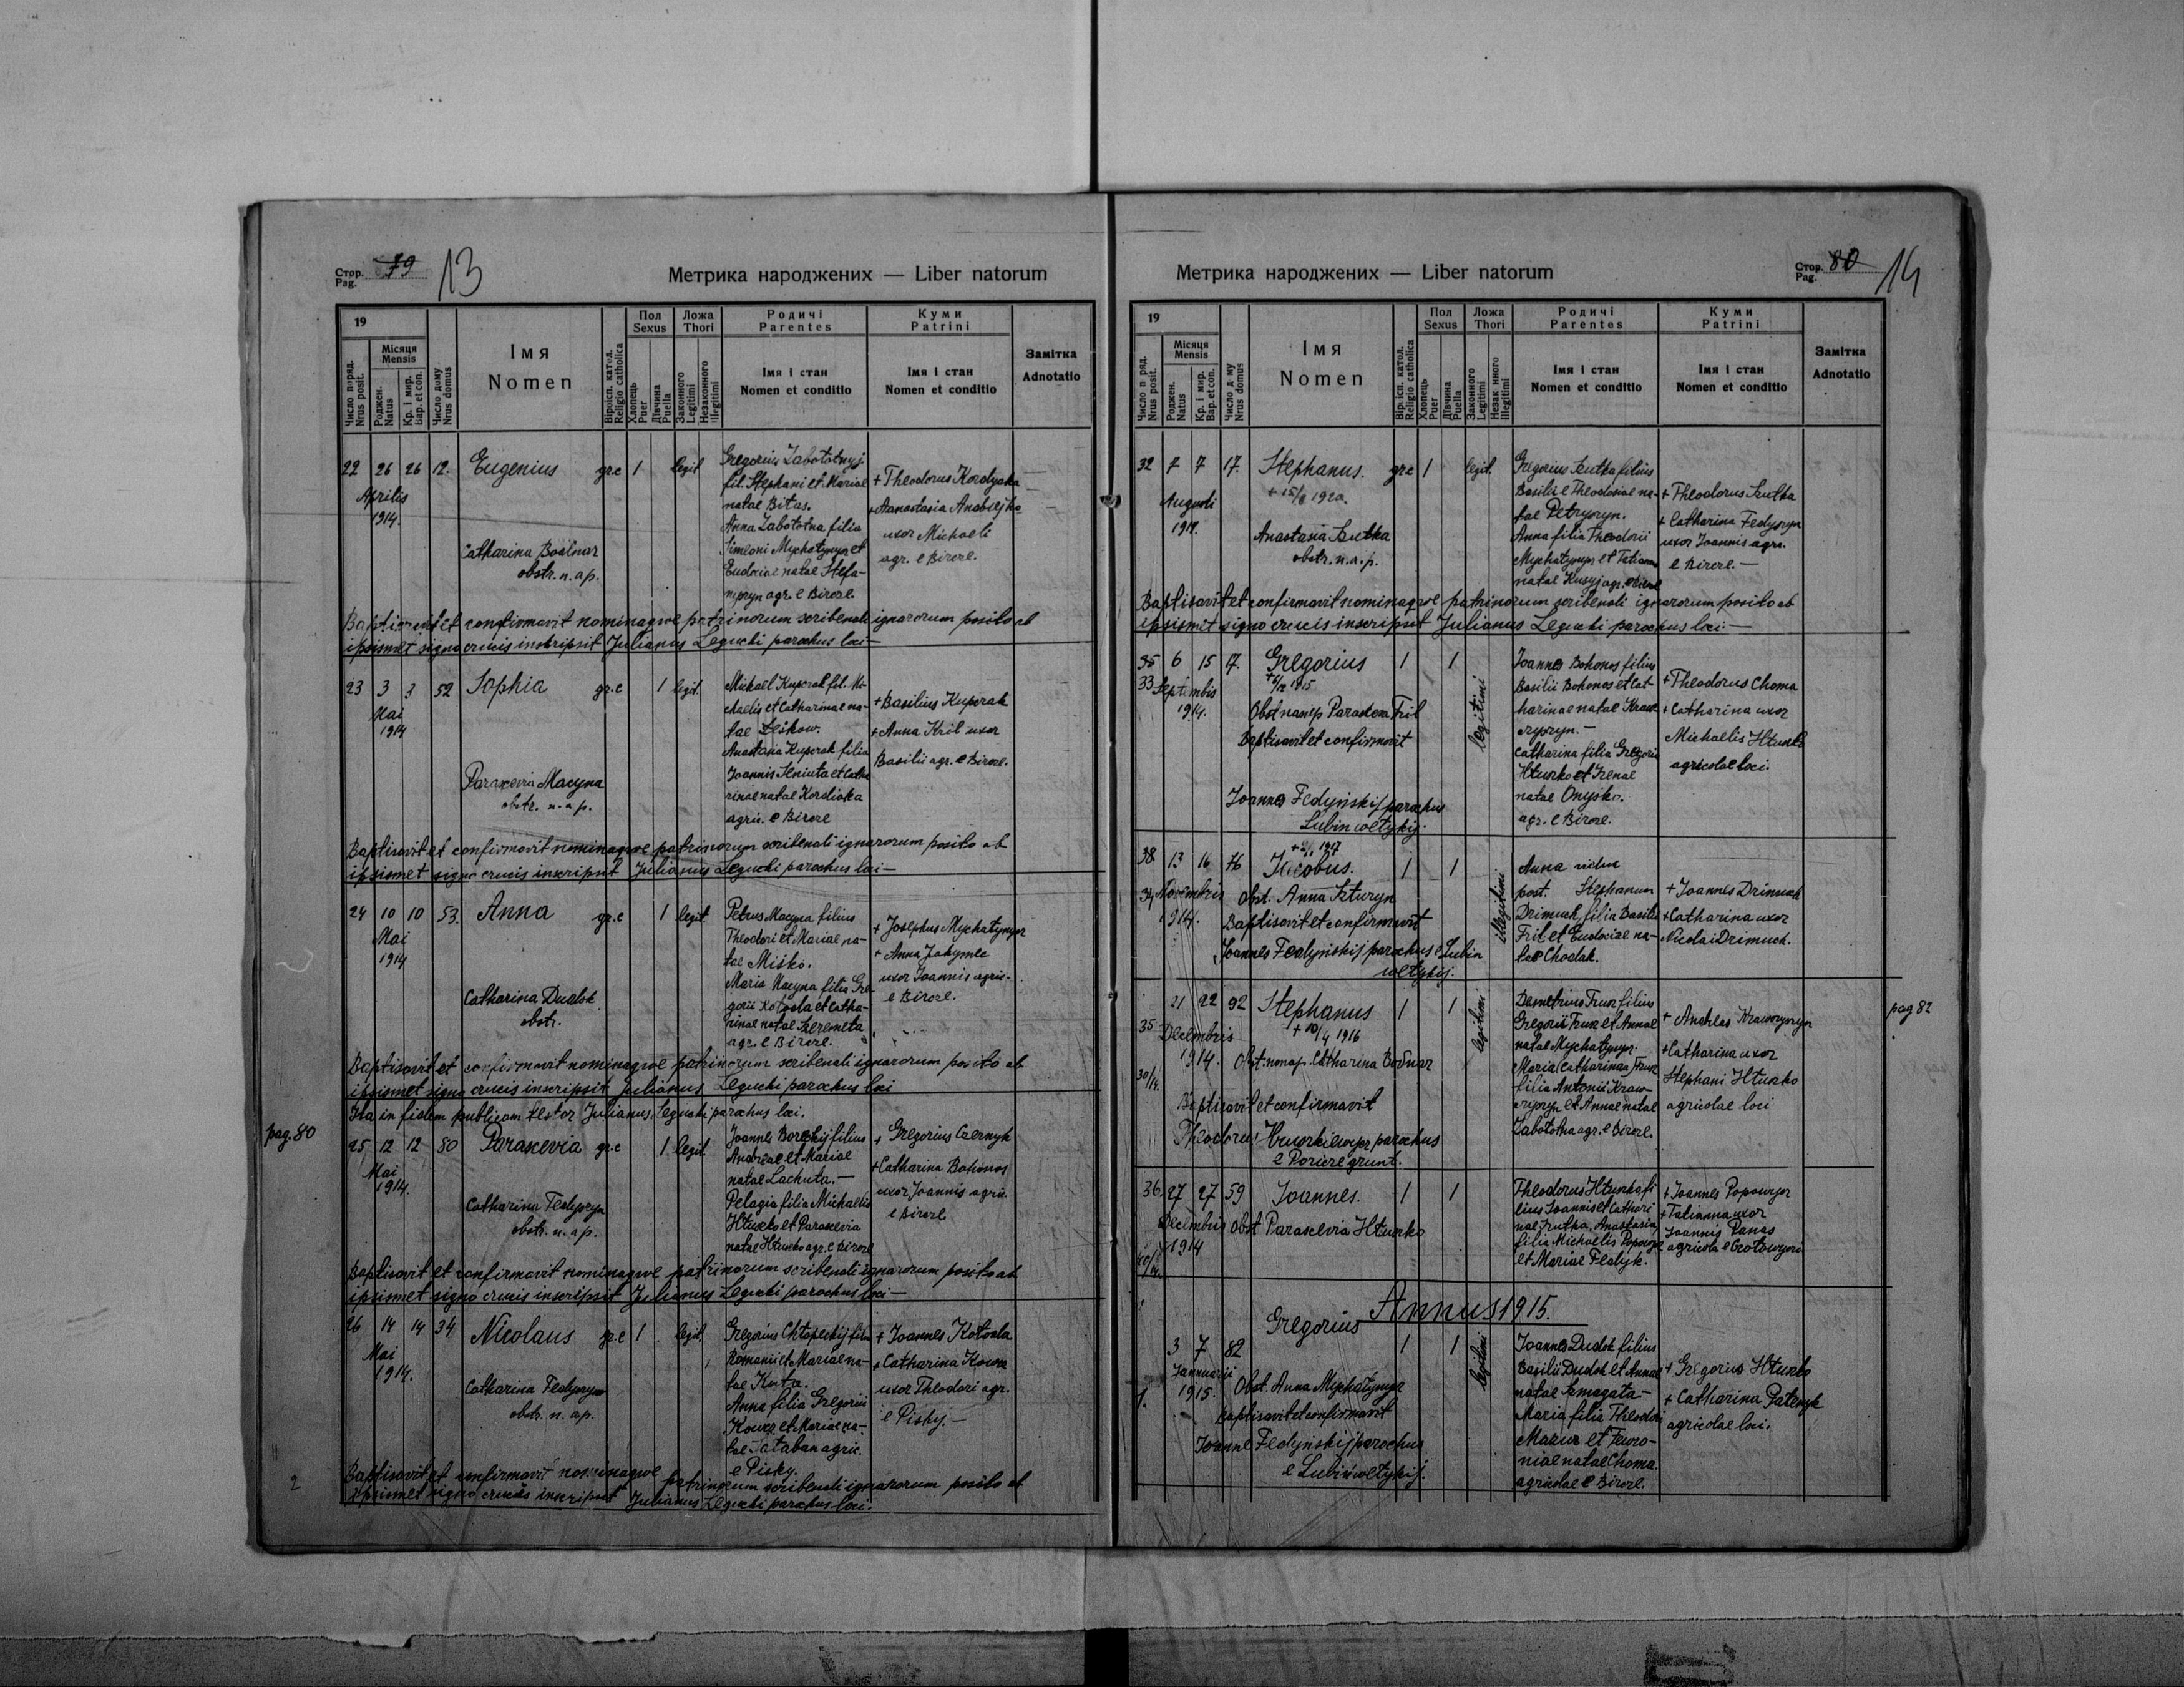 Стор. 79 13
Pag.
Метрика народжених — Liber natorum
19
Число поряд.
Nrus posit.
Місяця
Mensis
Роджен.
Natus
Кр. і мир.
Bap. et con.
Число дому
Nrus domus
Імя
Nomen
Віроісп. катол.
Religio catholica
Пол
Sexus
Хлопець
Puer
Дівчина
Puella
Ложа
Thori
Законного
Legitimi
Незаконного
Illegitimi
Родичі
Parentes
Імя і стан
Nomen et conditio
Куми
Patrini
Імя і стан
Nomen et conditio
Замітка
Adnotatio
22 26 26 12. Eugenius gr.c 1 legit.
Aprilis
1914.
Catharina Bodnar
obstr. n. ap.
Gregorius Zabototnyj
fil. Stephani et Mariae
natae Bitas.
Anna Zabototna filia
Simeoni Mychatynyn et
Eudociae natae Stefa-
nyszyn agr. e Bircze.
+ Theodorus Kordyaka
+ Aanastasia Anobrejko
uxor Michaeli
agr. e Bircze.
Baptisavit et confirmavit nominaqve patrinorum scribendi ignarorum posito ab
ipsismet signo crucis inscripsit Julianus Legucki parochus loci —
23 3 3 52 Sophia gr.c 1 legit.
Mai
1914
Paraxevia Macyna
obstr. n. a p.
Michael Kuperak fil. Mi-
chaelis et Catharinae na-
tae Leśkow.
Anastasia Kuperak filia
Joannis Seniuta et Catha
rinae natae Kordiaka
agric. e Bircze
+ Basilius Kuperak
+ Anna Kril uxor
Basilii agr. e Bircze.
Baptisavit et confirmavit nominaqve patrinorum scribendi ignarorum posito ab
ipsismet signo crucis inscripsit Julianus Legucki parochus loci —
24 10 10 53. Anna gr.c 1 legit.
Mai
1914
Catharina Dudok
obstr.
Petrus Macyna filius
Theodori et Mariae na-
tae Miśko.
Maria Macyna filia Gre-
gorii Kotoda et Catha-
rinae natae Szeremeta
agr. e Bircze.
+ Josephus Mychatynyn
+ Anna Jakymec
uxor Joannis agric.
e Bircze.
Baptisavit et confirmavit nominaqve patrinorum scribendi ignarorum posito ab
ipsismet signo crucis inscripsit Julianus Legucki parochus loci
Ita in fidem publicam testor Julianus Legucki parochus loci.
pag. 80
25 12 12 80 Paraxevia gr.c 1 legit.
Mai
1914.
Catharina Fedyszyn
obstr. n. a p.
Joannes Boreckij filius
Andreae et Mariae
natae Lachuta. —
Pelagia filia Michaelis
Htuszko et Paraxevia
natae Htuszko agr. e Bircze
+ Gregorius Czernyk
+ Catharina Bohonos
uxor Joannis agric.
e Bircze
Baptisavit et confirmavit nominaqve patrinorum scribendi ignarorum posito ab
ipsismet signo crucis inscripsit Julianus Legucki parochus loci —
26 14 14 34 Nicolaus gr.c 1 legit.
Mai
1914.
Catharina Fedyszyn
obstr. n. a p.
Gregorius Chtopeckij filius
Romanii et Mariae na-
tae Kuta.
Anna filia Gregorii
Kowcz et Mariae na-
tae Tataban agric.
e Pisky.
+ Joannes Kotoda
+ Catharina Kowcz
uxor Theodori agr.
e Pisky. —
Baptisavit et confirmavit nominaqve patrinorum scribendi ignarorum posito ab
ipsismet signo crucis inscripsit Julianus Legucki parochus loci.
2
Стор. 80 14
Pag.
Метрика народжених — Liber natorum
19
Число п ряд.
Nrus posit.
Місяця
Mensis
Роджен.
Natus
Кр. і мир.
Bap. et con.
Число д му
Nrus domus
Імя
Nomen
Вір. ісп. катол.
Religio catholica
Пол
Sexus
Хлопець
Puer
Дівчина
Puella
Ложа
Thori
Законного
Legitimi
Незак нного
Illegitimi
Родичі
Parentes
Імя і стан
Nomen et conditio
Куми
Patrini
Імя і стан
Nomen et conditio
Замітка
Adnotatio
32 7 7 17. Stephanus. gr.c 1 legit.
1920.
Augusti
1914.
Anastasia Szutka
obstr. n. a. p.
Gregorius Szutka filius
Basilii e Theodosiae na-
tae Petryszyn.
Anna filia Theodorii
Mychatynyn et Tatianae
natae Kusyj agr. e Bircze
+ Theodorus Szutka
+ Catharina Fedyszyn
uxor Joannis agr.
e Bircze. —
Baptisavit et confirmavit nominaqve patrinorum scribendi ignarorum posito ab
ipsismet signo crucis inscripsit Julianus Legucki parochus loci. —
35 6 15 17. Gregorius 1 1
33 Septembris
1914.
legitimi
Obst. nanap Paraxevia Fril
Baptisavit et confirmavit
Joannes Fedyńskij parochus
Lubin wetykij.
Joannes Bohonos filius
Basilii Bohonos et Cat-
harinae natae Kraw
czyszyn. —
Catharina filia Gregorii
Htuszko et Irenae
natae Onyśko.
agr. e Bircze.
+ Theodorus Choma
+ Catharina uxor
Michaelis Htuszko
agricolae loci.
1917
38 13 16 76 Jacobus. 1 1
34 Novembris
1914.
illegitimi
Obst. Anna Szturyn
Baptisavit et confirmavit
Joannes Fedyńskij parochus e Lubin
wetykij.
Anna vidua
post. Stephanum
Drimuch, filia Basilii
Fril et Eudociae na-
tae Chodak.
+ Joannes Drimuch
+ Catharina uxor
Nicolai Drimuch.
21 22 92 Stephanus 1 1
+ 10/4 1916
35 Decembris
1914.
legitimi
Obst. nonap. Catharina Bodnar
Baptisavit et confirmavit
parochus
Demetrius Trusz filius
Gregorii Trusz et Annae
natae Mychatynyn.
Maria (Catharina) Trusz
filia Antonii Kraw-
czyszyn et Annae natae
Zabototna agr. e Bircze.
+ Andreas Krawczyszyn
+ Catharina uxor
Stephani Htuszko
agricolae loci
pag 82
36. 27 27 59 Joannes. 1 1
Decembris
1914
Obst Paraxevia Htuszko
Theodorus Htuszko fi
lius Joannis et Cathari
nae Szutka, Anastasia
filia Michaelis Popowycz
et Mariae Fedyk.
+ Joannes Popowycz
+ Tatianna uxor
Joannis Panas
agricola
Annus 1915.
Gregorius
3 7 82 1 1
Jannuarii
1915.
1.
legitimi
Obst. Anna Mychatynyn
Baptisavit et confirmavit
Joannes Fedyńskij parochus
e Lubin wetykij.
Joannes Dudok filius
Basilii Dudok et Annae
natae Szmagata —
Maria filia Theodori
Mazur et Fewro-
niae natae Choma.
agricolae e Bircze.
+ Gregorius Htuszko
+ Catharina Patenyk
agricolae loci.